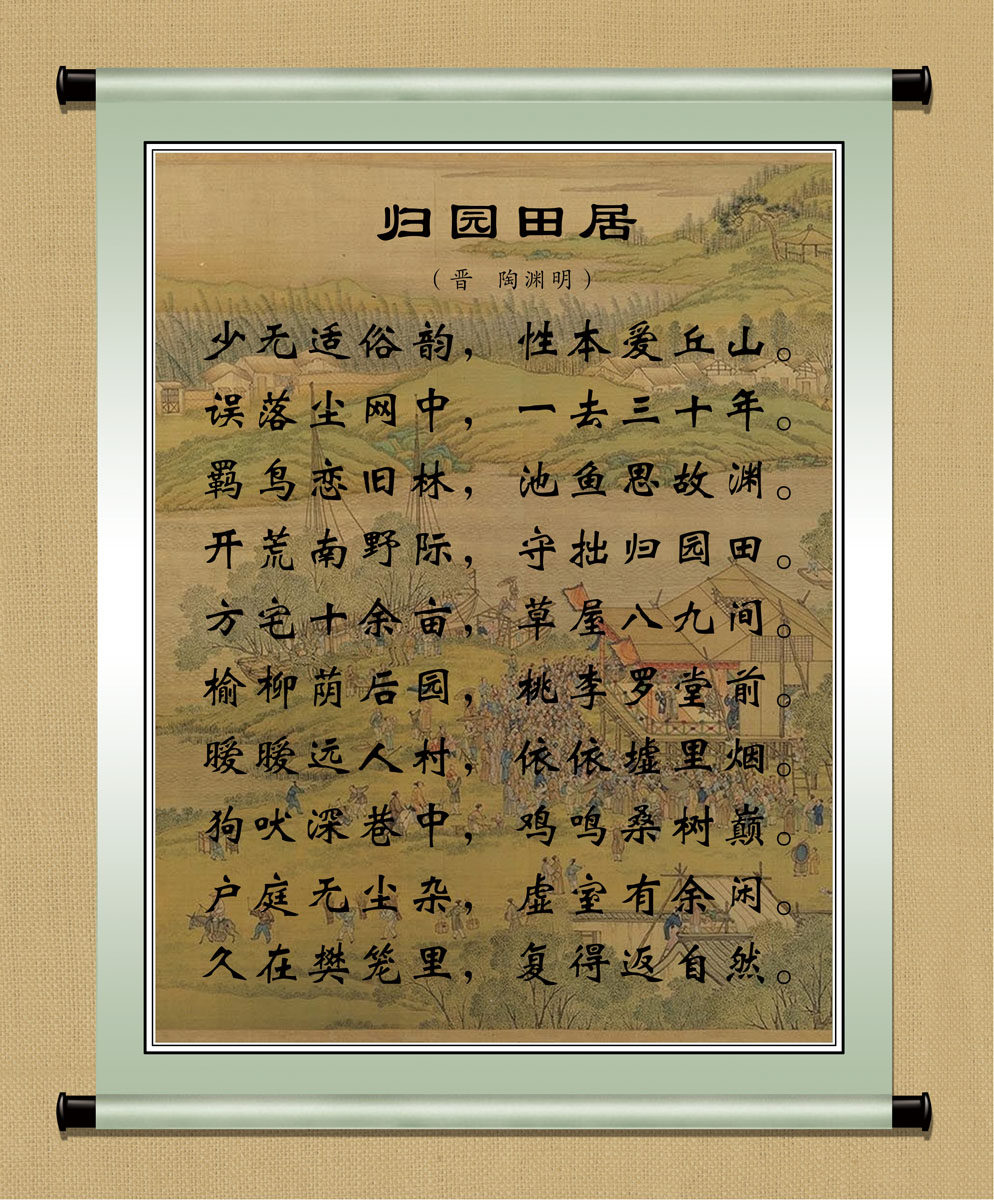 归园田居
（晋 陶渊明）
少无适俗韵，性本爱丘山。
误落尘网中，一去三十年。
羁鸟恋旧林，池鱼思故渊。
开荒南野际，守拙归园田。
方宅十余亩，草屋八九间。
榆柳荫后园，桃李罗堂前。
暧暧远人村，依依墟里烟。
狗吠深巷中，鸡鸣桑树巅。
户庭无尘杂，虚室有余闲。
久在樊笼里，复得返自然。